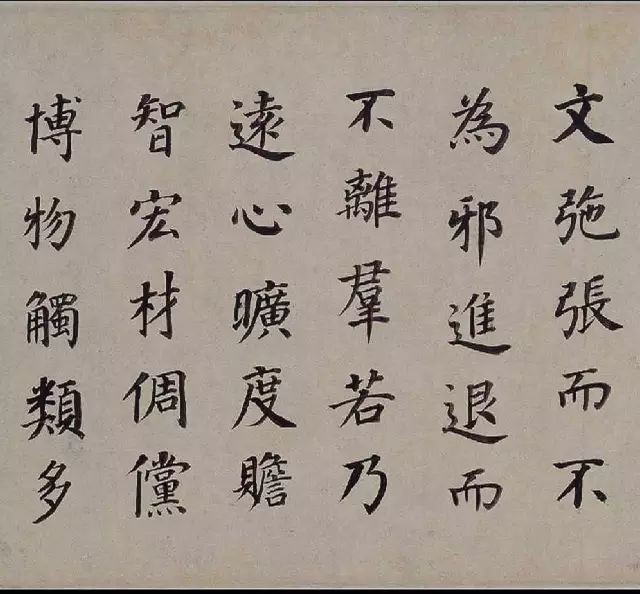 文弛張而不
為邪進退而
不離羣若乃
遠心曠度贍
智宏材倜儻
博物觸類多